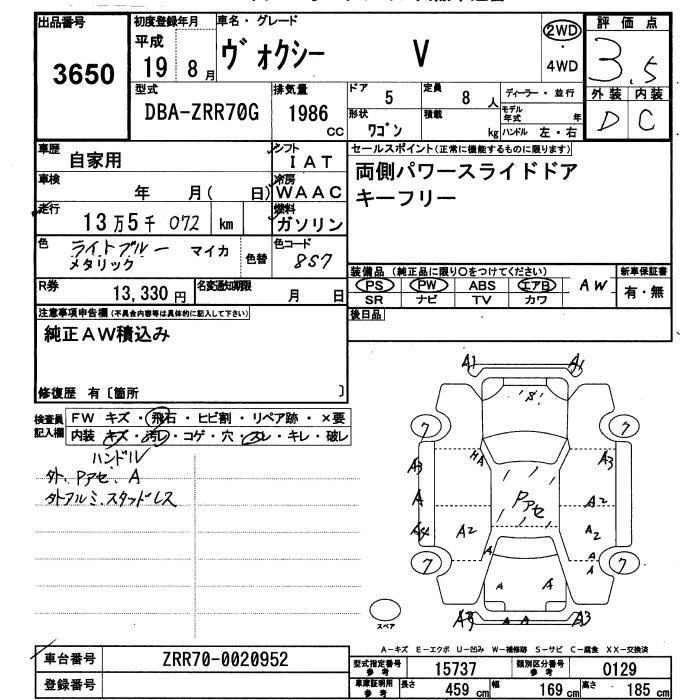 出品番号
3650
初度登録年月
平成
19 8月
車名・グレード
ヴォクシー V
2WD
・
4WD
評価点
3.5
外装 内装
D C
型式
DBA-ZRR70G
排気量
1986
CC
ドア
5
定員
8人
ディーラー・並行
モデル年式 年
形状
ワゴン
積載
kg
ハンドル 左・右
車歴
自家用
シフト
IAT
車検
年 月( 日)
冷房
WAAC
走行
13万5千072 km
燃料
ガソリン
色
ライトブルー マイカ
メタリック
色替
色コード
8S7
R券
13,330円
名変通知期限
月 日
セールスポイント(正常に機能するものに限ります)
両側パワースライドドア
キーフリー
装備品 (純正品に限り〇をつけてください)
PS PW ABS エアB AW
SR ナビ TV カワ
新車保証書
有・無
後日品
注意事項申告欄(不具合内容等は具体的に記入して下さい)
純正AW積込み
修復歴 有〔箇所 〕
検査員記入欄
FW キズ・飛石・ヒビ割・リペア跡・×要
内装 キズ・汚レ・コゲ・穴・スレ・キレ・破レ
ハンドル
外、Pアセ、A
外アルミ、スタッドレス
A1 A1
S
7 7
A3 A3
A A2
A4 A2 A2
A A
Pアセ
7 7
A A A
A3 A3
スペア
A－キズ E－エクボ U－凹み W－補修跡 S－サビ C－腐食 XX－交換済
車台番号
ZRR70-0020952
登録番号
型式指定番号参考
15737
類別区分番号参考
0129
車庫証明用参考
長さ 459cm
幅 169cm
高さ 185cm